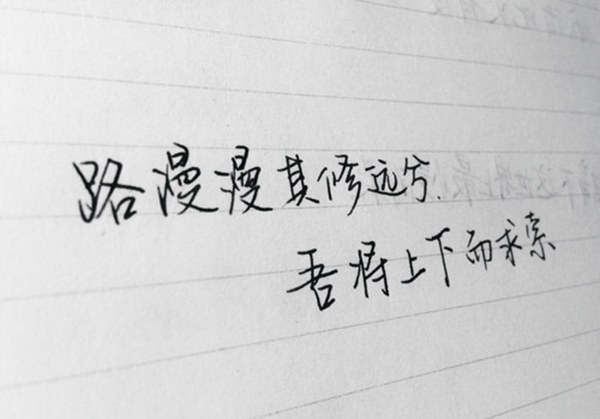 路漫漫其修远兮.
吾将上下而求索